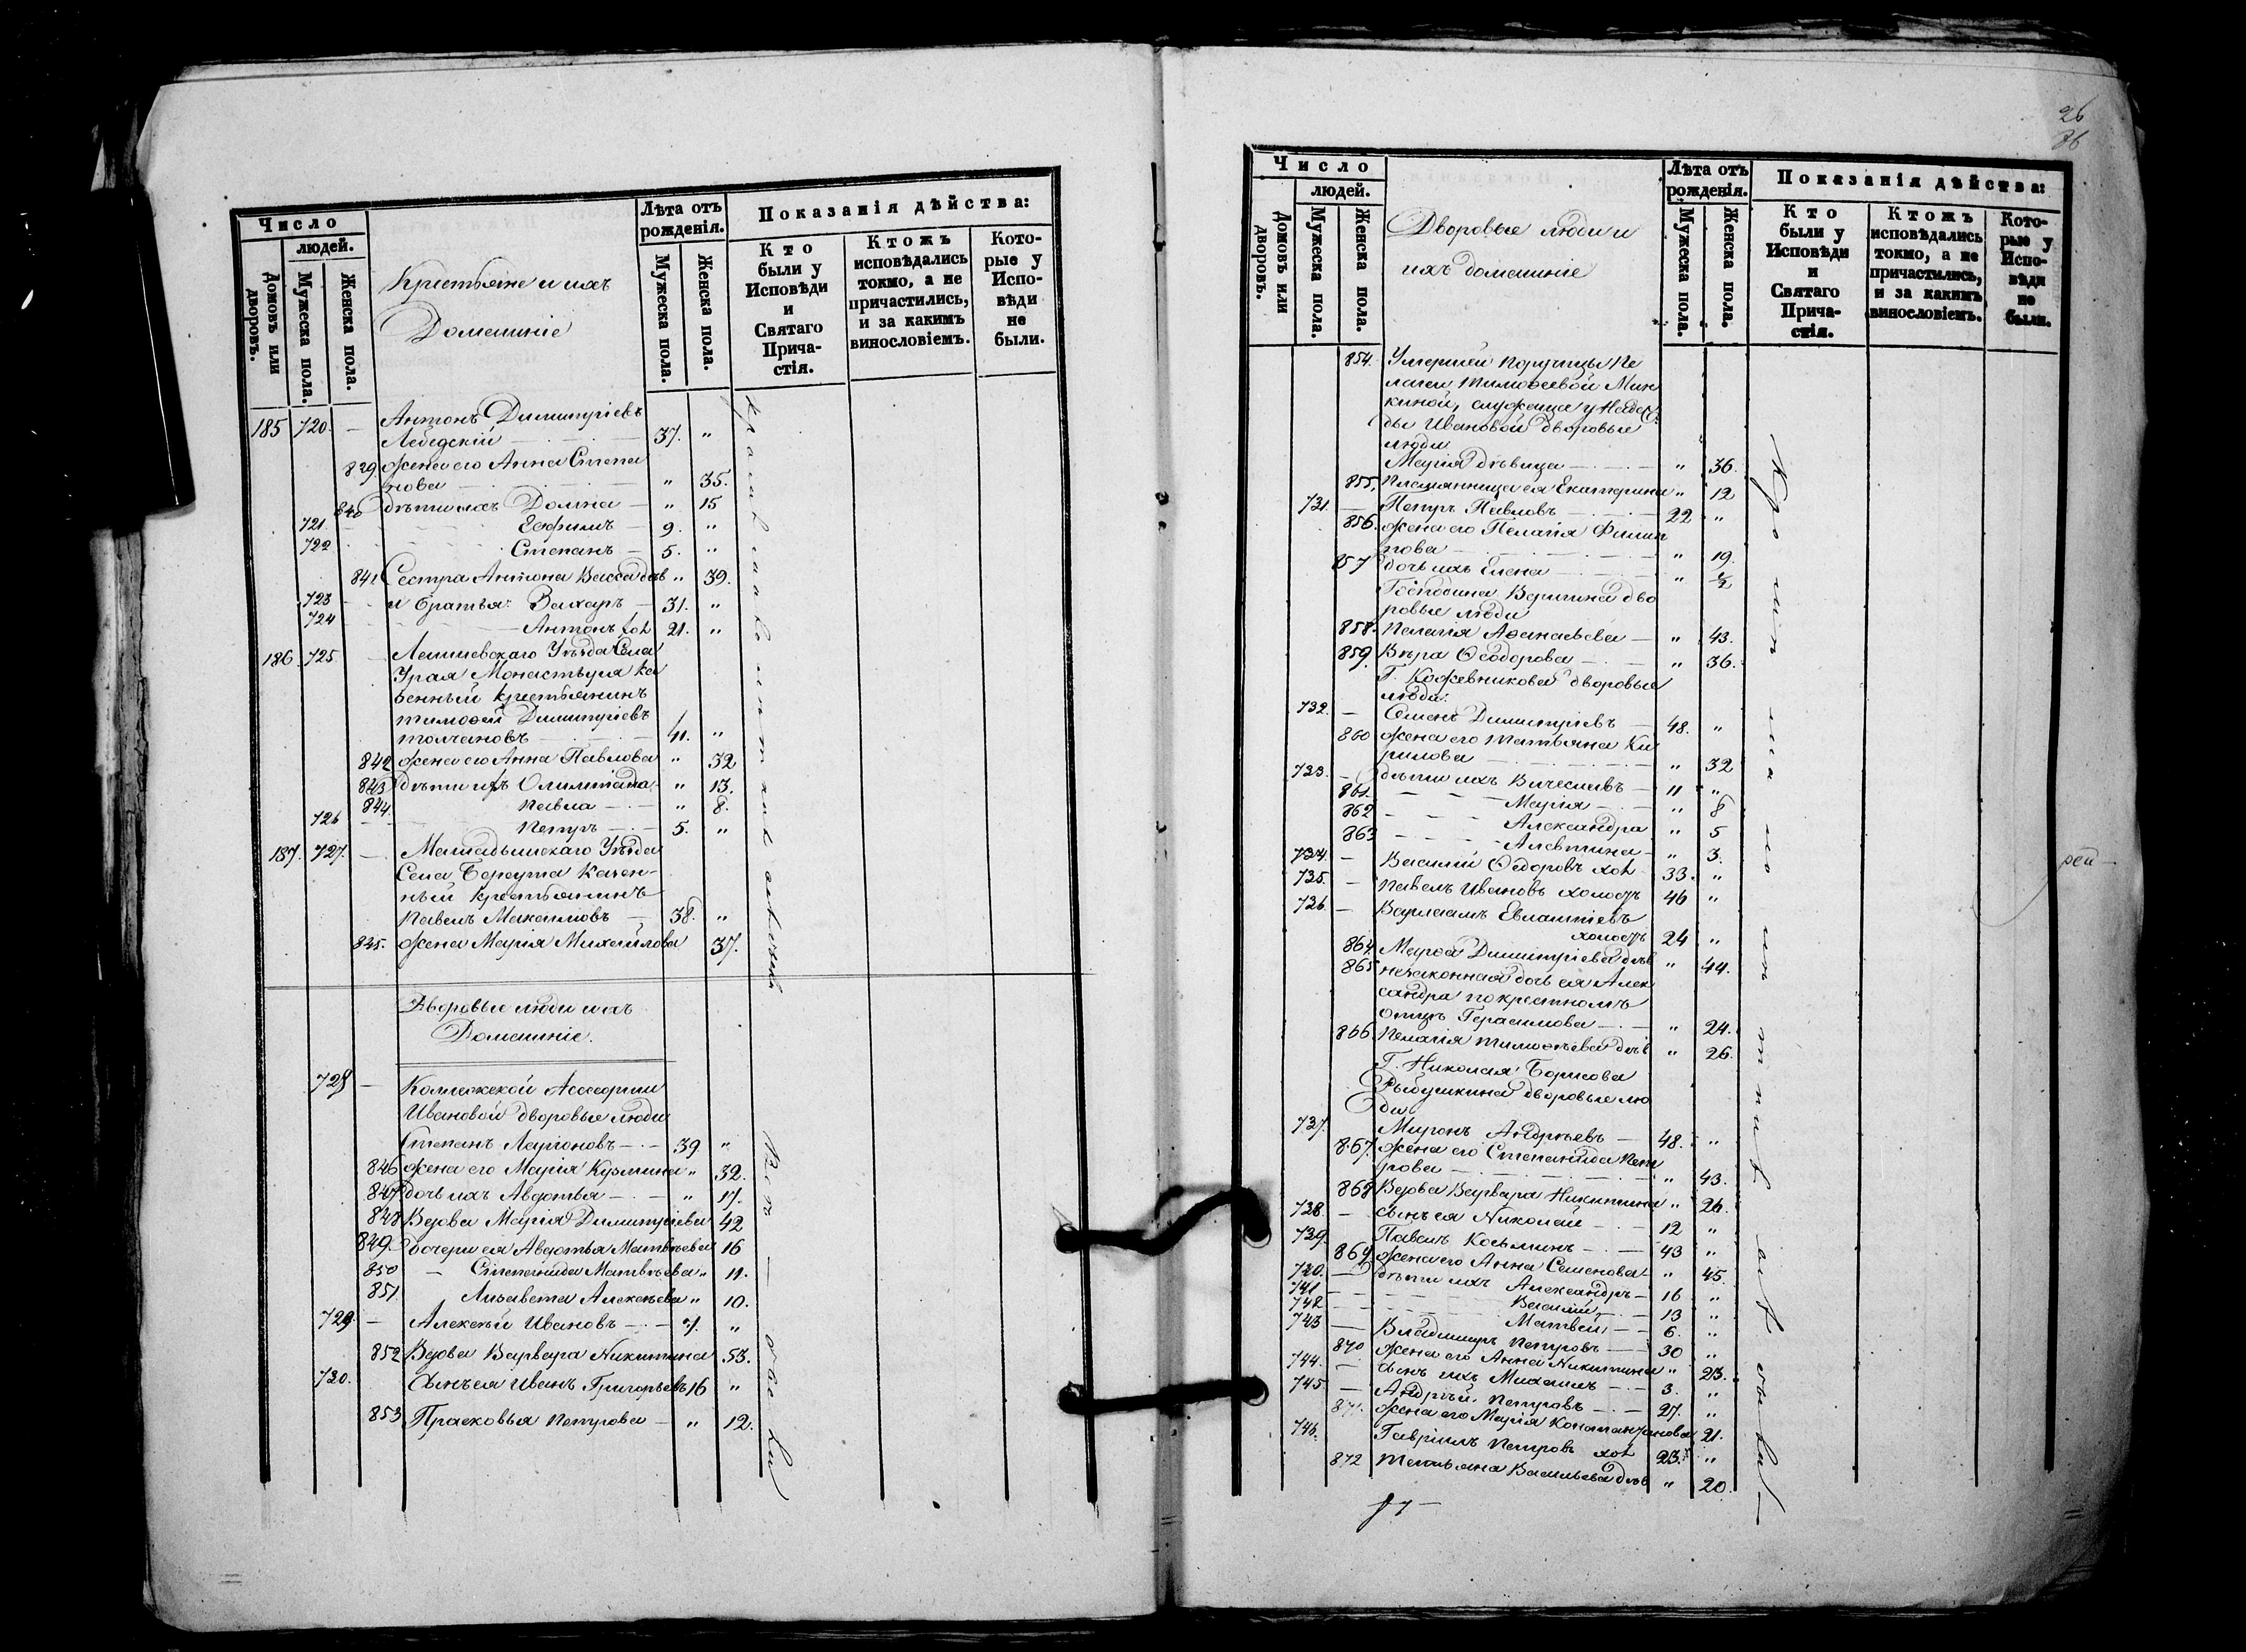 Число
людей.
Домовъ или дворовъ.
Мужеска пола.
Женска пола.
Крестьяне и ихъ
Домашніе
Лѣта отъ рожденія.
Мужеска пола.
Женска пола.
Показанія дѣйства:
Кто были у Исповѣди и Святаго Прича-стія.
Ктожъ исповѣдались токмо, а не причастились, и за какимъ винословіемъ.
Кото-рые у Испо-вѣди не были.
185 720. — Антонъ Димитріевъ
Лебедскій — 37. "
839. жена его Анна Степа
нова — " 35.
840 дѣти ихъ Домна — " 15
721. Ефимъ — 9. "
722 Степанъ — 5. "
841 Сестра Антона Васса дѣв " 39.
723 и братья: Захаръ — 31. "
724 Антонъ хол 21. "
186. 725. — Лаишевскаго Уѣзда Села
Урая Монастыря ка
зенный крестьянинъ
Тимоѳей Димитріевъ
Толчановъ — 41. "
842 жена его Анна Павлова " 32
843 дѣти ихъ Олимпіада " 13.
844. Павла — " 8.
726 Петръ — 5. "
187. 727. — Мамадышскаго Уѣзда
Села Берсута Казен-
ный крестьянинъ
Павелъ Максимовъ — 38. "
845. жена Марія Михайлова 37.
Дворовые люди и ихъ
Домашніе.
728 — Коллежской Ассесорши
Ивановой дворовые люди
Степанъ Ларіоновъ — 39 "
846 жена его Марія Кузмина " 32.
847 дочь ихъ Авдотья — " 17.
848 Вдова Марія Димитріева 42
849. дочери ея Авдотья Матвѣева 16
850 — Степанида Матвѣева " 11.
851. Лизавета Алексѣева " 10.
729. — Алексѣй Ивановъ — 71. "
852 Вдова Варвара Никитина 53.
730. Сынъ ея Иванъ Григорьевъ 16 "
853 Прасковья Петрова — " 12.
26
36
Число
людей.
Домовъ или дворовъ.
Мужеска пола.
Женска пола.
Дворовые люди и
ихъ домашніе
Лѣта отъ рожденія.
Мужеска пола.
Женска пола.
Показанія дѣйства:
Кто были у Исповѣди и Святаго Прича-стія.
Ктожъ исповѣдались токмо, а не причастились, и за какимъ винословіемъ.
Кото-рые у Испо-вѣди не были.
854. Умершей Поручицы Пе
лагеи Тимоѳеевой Мин
киной, служаща у Надеж
ды Ивановой дворовые
люди.
Марія дѣвица — " 36.
855. Племянница ея Екатерина " 12
731. — Петръ Павловъ — 22 "
856. жена его Пелагія Филип
пова — " 19.
857 дочь ихъ Елена — " ½
Господина Веригина дво
ровые люди
858. Пелагія Аѳанасьева — " 43.
859. Вѣра Ѳеодорова — " 36.
Г. Кожевникова дворовые
люди:
732. — Семенъ Димитріевъ — 48. "
860 жена его Татьяна Ки
рилова — " 32
733. — дѣти ихъ Вячеславъ — 11 "
861. Марія — " 8
862 Александра " 5
863 Алевтина — " 3.
734. — Василій Ѳедоровъ хол 33. "
735. — Павелъ Ивановъ холостъ 46 "
736. — Варлаамъ Евлампіевъ
холостъ 24 "
864. Марѳа Димитріева дѣв " 44.
865 незаконная дочь ея Алек
сандра по крестномъ
отцѣ Герасимова — " 24.
866. Пелагія Тимоѳѣева дѣв " 26.
Г. Николая Борисова
Рыбушкина дворовые лю
ди
737. Миронъ Андрѣевъ — 48. "
867. жена его Степанида Пет
рова — " 43.
868 Вдова Варвара Никитина " 26.
738. — сынъ ея Николай — 12 "
739. Павелъ Косьминъ — 43 "
869 жена его Анна Семенова " 45.
740. — дѣти ихъ Александръ — 16 "
741 — Василій — 13 "
742 — Матвей — 6. "
743 — Владимиръ Петровъ — 30 "
870 жена его Анна Никитина " 23.
744. — сынъ ихъ Михаилъ — 3. "
745. — Андрѣй Петровъ — 27. "
871. жена его Марія Константинова 21.
746. Гавріилъ Петровъ хол 23. "
872 Татьяна Васильева дѣв " 20.
рей